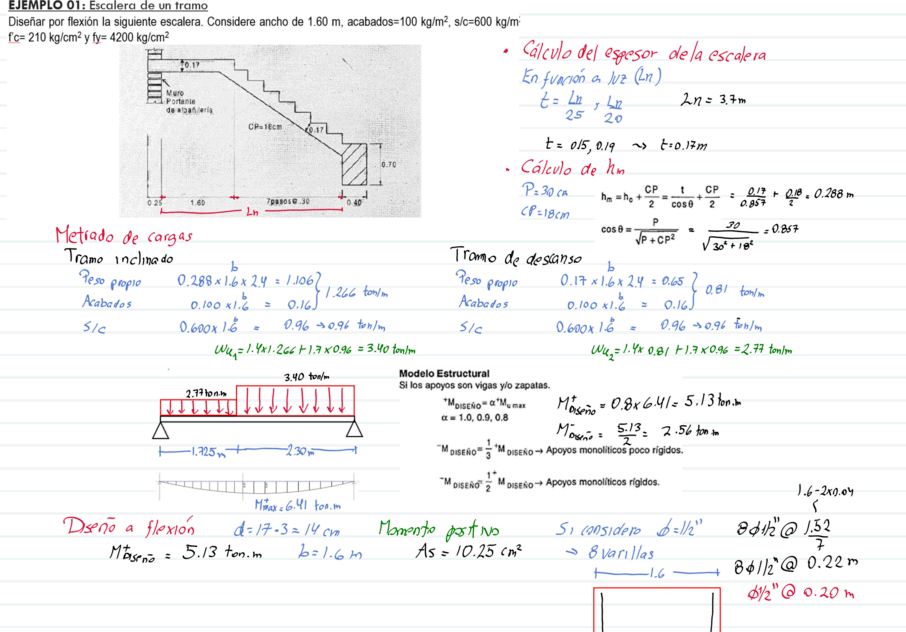 EJEMPLO 01: Escalera de un tramo
Diseñar por flexión la siguiente escalera. Considere ancho de 1.60 m, acabados=100 kg/m², s/c=600 kg/m
f'c= 210 kg/cm² y fy= 4200 kg/cm²
0.17
Muro
Portante
de albañilería
CP=18cm
0.17
0.70
0.25
1.60
7pasos@.30
0.40
Ln
• Cálculo del espesor de la escalera
En función a luz (Ln)
t = Ln/25 , Ln/20
Ln = 3.7m
t = 015, 0.19 ⇝ t=0.17m
• Cálculo de hm
P=30 cm
CP=18cm
hm = ho + CP/2 = t/cosθ + CP/2 = 0.17/0.857 + 0.18/2 = 0.288 m
cosθ = P/√(P+CP²) = 30/√(30²+18²) = 0.857
Metrado de cargas
Tramo inclinado
b
Peso propio 0.288×1.6×2.4 = 1.106
Acabados 0.100 ×1.6 = 0.16 } 1.266 ton/m
b
S/c 0.600×1.6 = 0.96 → 0.96 ton/m
b
Wu1=1.4×1.266+1.7×0.96 = 3.40 ton/m
Tramo de descanso
b
Peso propio 0.17×1.6×2.4 = 0.65
Acabados 0.100 ×1.6 = 0.16 } 0.81 ton/m
b
S/c 0.600×1.6 = 0.96 → 0.96 ton/m
b
Wu2=1.4× 0.81 +1.7×0.96 = 2.77 ton/m
3.40 ton/m
2.77 ton.m
1.725m
2.30m
M⁺max=6.41 ton.m
Modelo Estructural
Si los apoyos son vigas y/o zapatas.
⁺M DISEÑO = α⁺Mu max
α = 1.0, 0.9, 0.8
⁻M DISEÑO = 1/3 ⁺M DISEÑO → Apoyos monolíticos poco rígidos.
⁻M DISEÑO = 1/2 ⁺M DISEÑO → Apoyos monolíticos rígidos.
M⁺Diseño = 0.8×6.41 = 5.13 ton.m
M⁻Diseño = 5.13/2 = 2.56 ton.m
Diseño a flexión
d=17-3=14 cm
M⁺Diseño = 5.13 ton.m
b=1.6 m
Momento positivo
As = 10.25 cm²
Si considero ϕ=1/2"
→ 8 varillas
1.6
1.6-2×0.04
8ϕ1/2"@ 1.52/7
8ϕ1/2"@ 0.22 m
ϕ1/2"@ 0.20 m